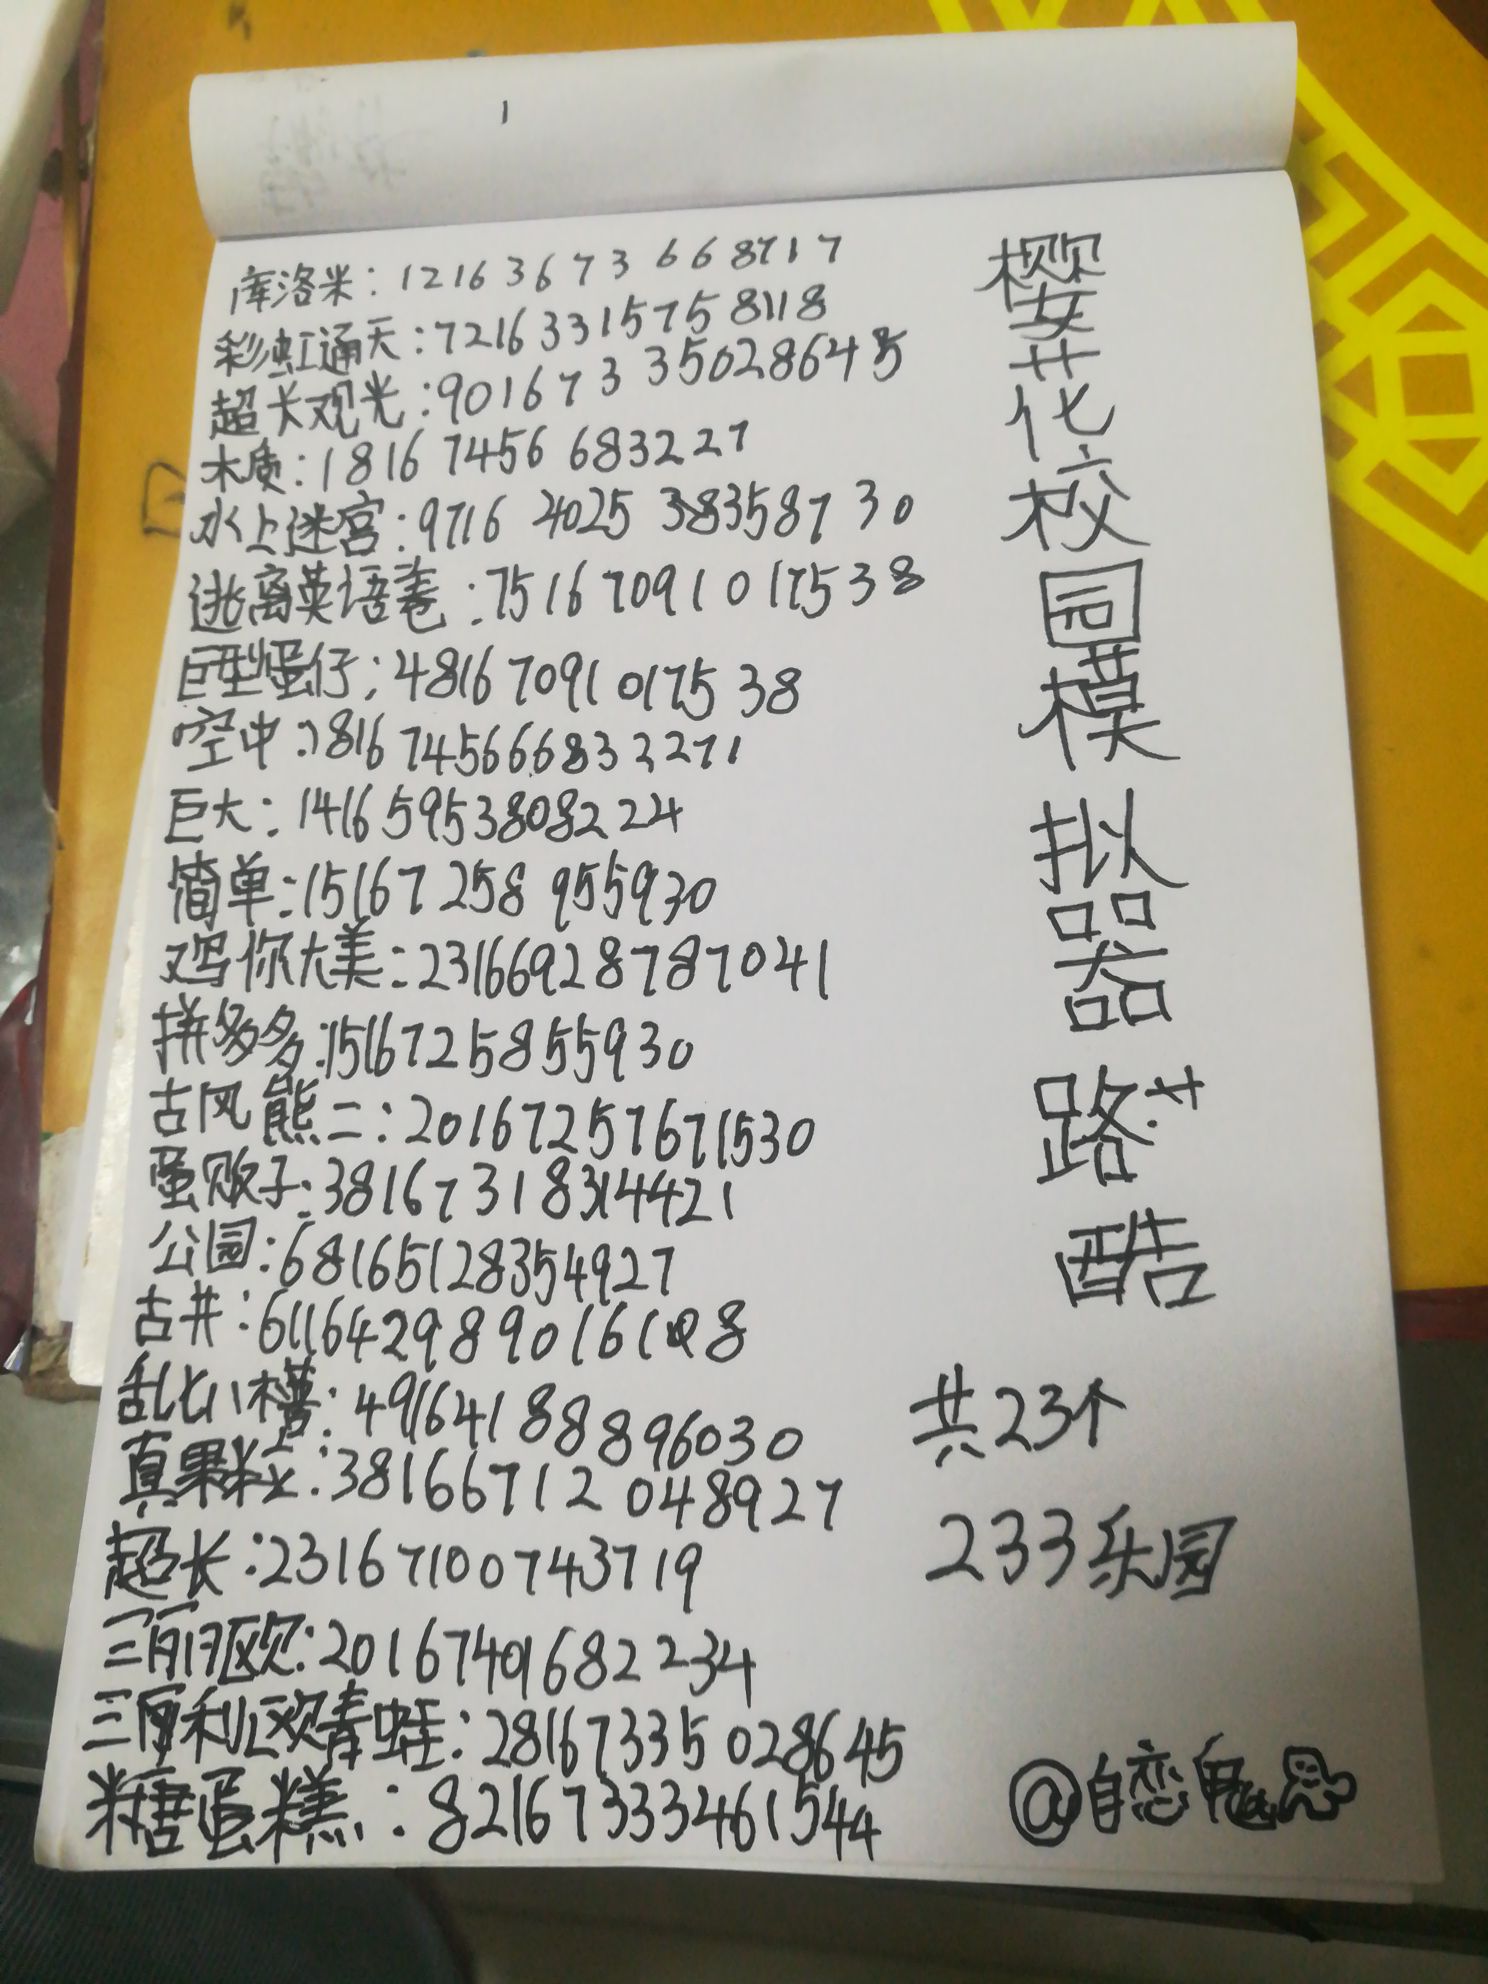 库洛米：12163673668717
彩虹通天：72163315758118
超长观光：90167335028645
木质：18167456683227
水上迷宫：9716402538358730
逃离英语卷：75167091017538
巨型蛋仔：48167091017538
空中：7816745666832271
巨大：14165953808224
简单：15167258955930
鸡你大美：23166928787041
拼多多：1516725855930
古风熊二：20167257671530
蛋贩子：38167318314421
公园：68165128354927
古井：61164298901618
乱七八槽：49164188896030
真果粒：38166712048927
超长：23167100743719
三丽欧：20167401682234
三丽利欧青蛙：28167335028645
糖蛋糕：82167333461544
樱花校园模拟器
路
酷
共23个
233乐园
@自恋鬼